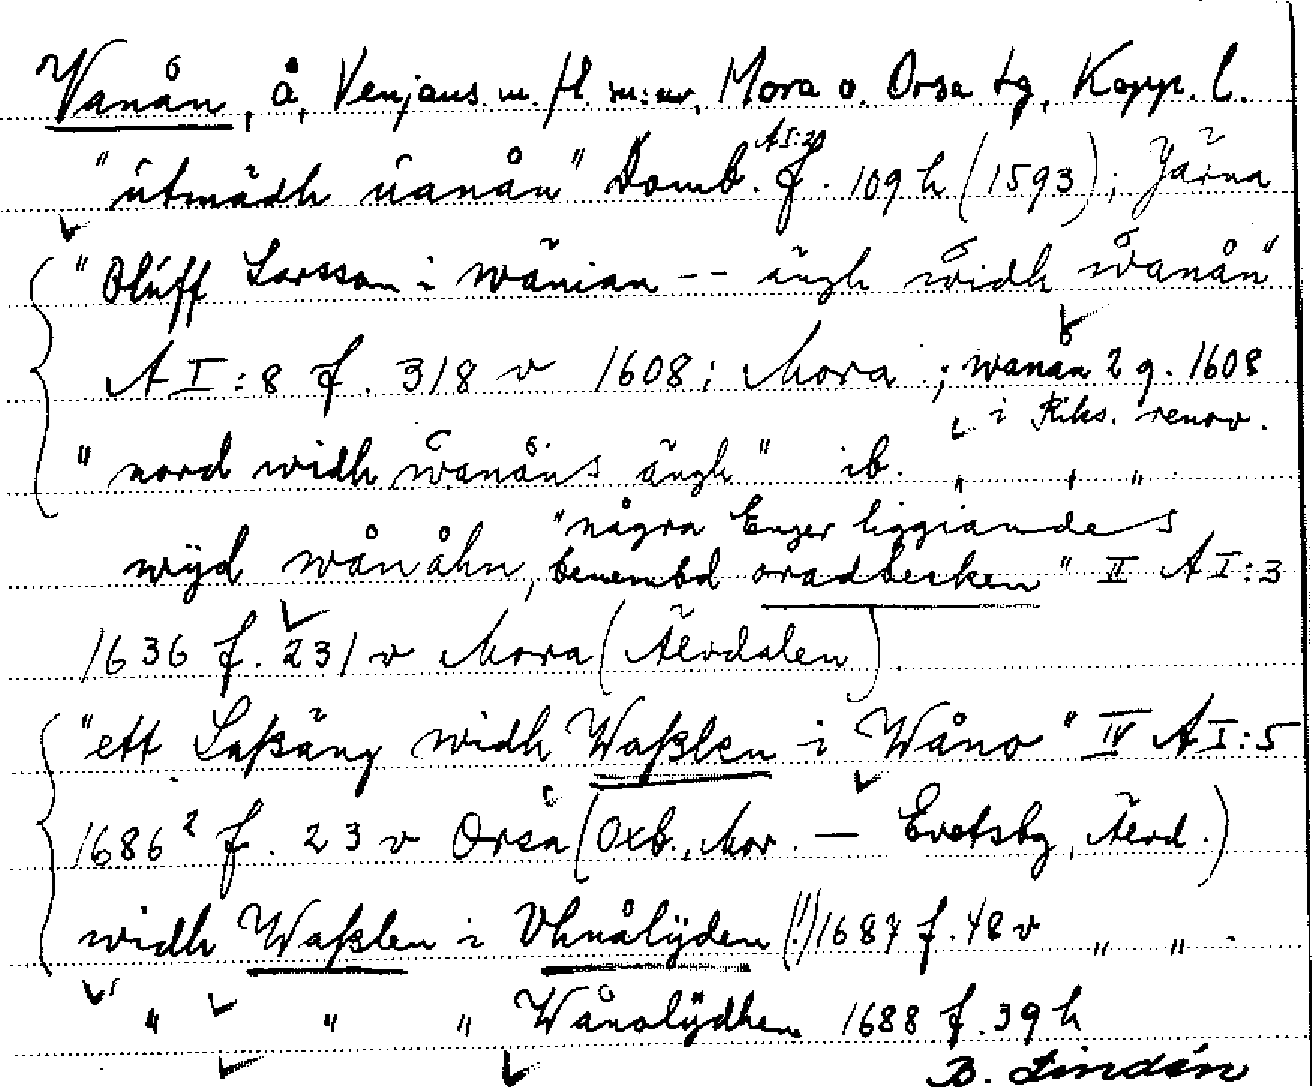 Vanån, å, Venjans m. fl. sn:ar, Mora o. Orsa tg, Kopp. l.
"útmädh úanån" Domb. AI:20 f. 109 h (1593); Järna
"Olúff Larsson i wänian -- ängh widh wanån"
AI:8 f. 318 v 1608; Mora ; wanån 2 g. 1608
i Riks. renov.
" nord widh wanåns ängh" ib. " " "
"några Enger liggiandes
wijd wånåhn, benembd oradbecken" II AI:3
1636 f. 231 v Mora (Älvdalen)
"ett Laßäng widh Waßlen i Wåno" IV AI:5
1686² f. 23 v Orsa (Oxb., Mor. — Evetsbg, Älvd.)
widh Waßlen i Vhnålÿden (!) 1687 f. 48 v " " .
" " " Wånolÿdhen 1688 f. 39 h
B. Lindén